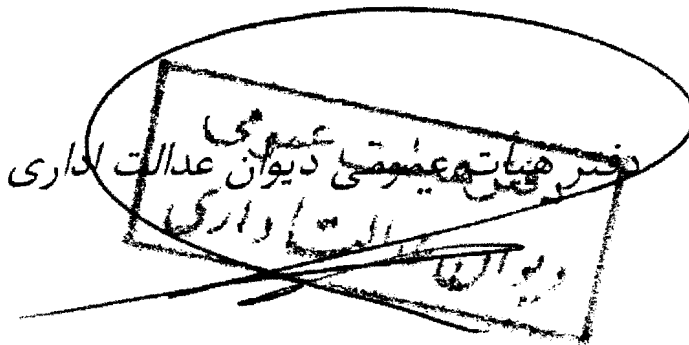 دفتر هیأت عمومی دیوان عدالت اداری
دفتر هیأت عمومی
دیوان عدالت اداری